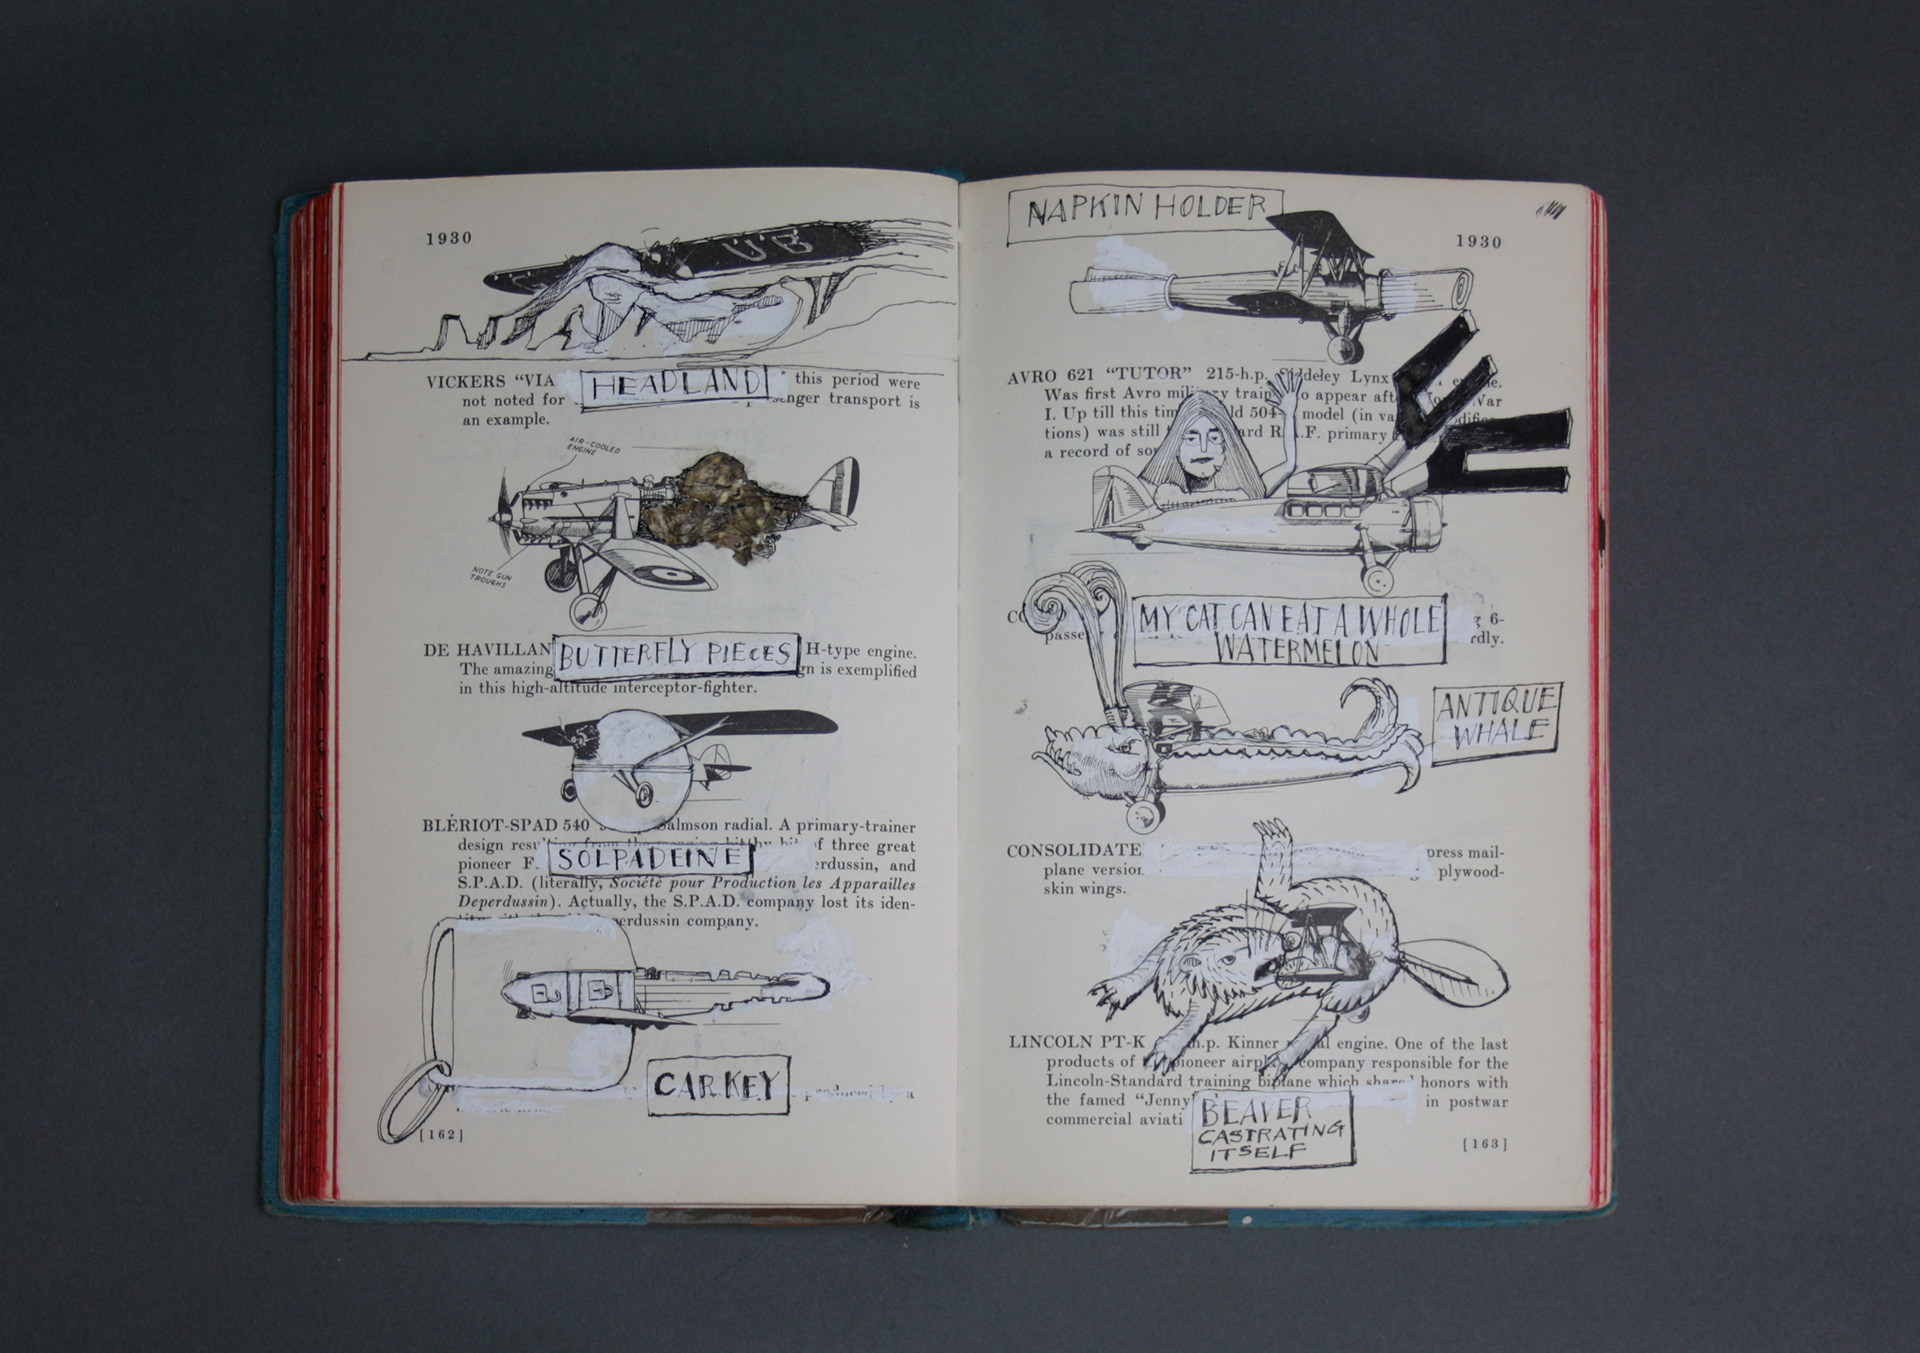 1930
UB
VICKERS "VIA HEADLAND this period were
not noted for enger transport is
an example.
AIR-COOLED
ENGINE
NOTE GUN
TROUGHS
DE HAVILLAN BUTTERFLY PIECES H-type engine.
The amazing gn is exemplified
in this high-altitude interceptor-fighter.
BLÉRIOT-SPAD 540 Salmson radial. A primary-trainer
design resulting from the of three great
pioneer F. SOLPADEINE erdussin, and
S.P.A.D. (literally, Société pour Production les Apparailles
Deperdussin). Actually, the S.P.A.D. company lost its iden-
erdussin company.
CAR KEY produced by a
[162]
NAPKIN HOLDER
1930
AVRO 621 "TUTOR" 215-h.p. Siddeley Lynx
Was first Avro military to appear War
I. Up till this 504 model (in
tions) was still ard R.A.F. primary
a record of
MY CAT CAN EAT A WHOLE 6-
passe WATERMELON rdly.
ANTIQUE
WHALE
CONSOLIDATE press mail-
plane version plywood-
skin wings.
LINCOLN PT-K h.p. Kinner engine. One of the last
products of pioneer company responsible for the
Lincoln-Standard training biplane which shared honors with
the famed "Jenny in postwar
commercial aviati
BEAVER
CASTRATING
ITSELF
[163]